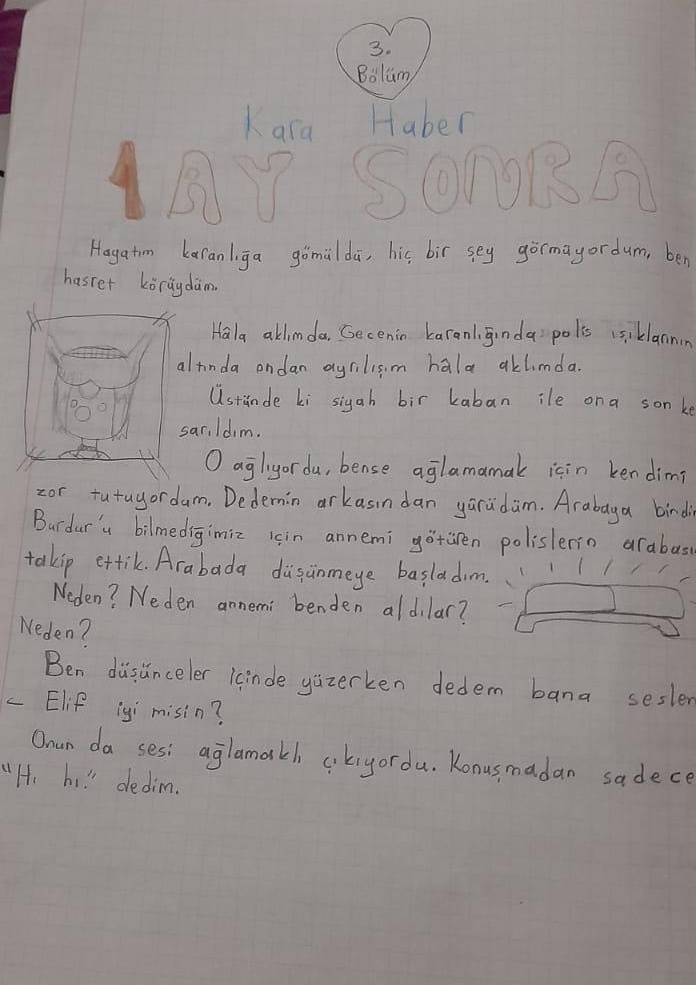 3.
Bölüm
Kara Haber
1 AY SONRA
Hayatım karanlığa gömüldü, hiç bir şey görmüyordum, ben
hasret körüydüm.
Hâla aklımda. Gecenin karanlığında polis ışıklarının
altında ondan ayrılışım hâla aklımda.
Üstünde ki siyah bir kaban ile ona son ke
sarıldım.
O ağlıyordu, bense ağlamamak için kendimi
zor tutuyordum. Dedemin arkasından yürüdüm. Arabaya bindi
Burdur'u bilmediğimiz için annemi götüren polislerin arabası
takip ettik. Arabada düşünmeye başladım.
Neden? Neden annemi benden aldılar?
Neden?
Ben düşünceler içinde yüzerken dedem bana seslen
- Elif iyi misin?
Onun da sesi ağlamaklı çıkıyordu. Konuşmadan sadece
"Hı hı." dedim.